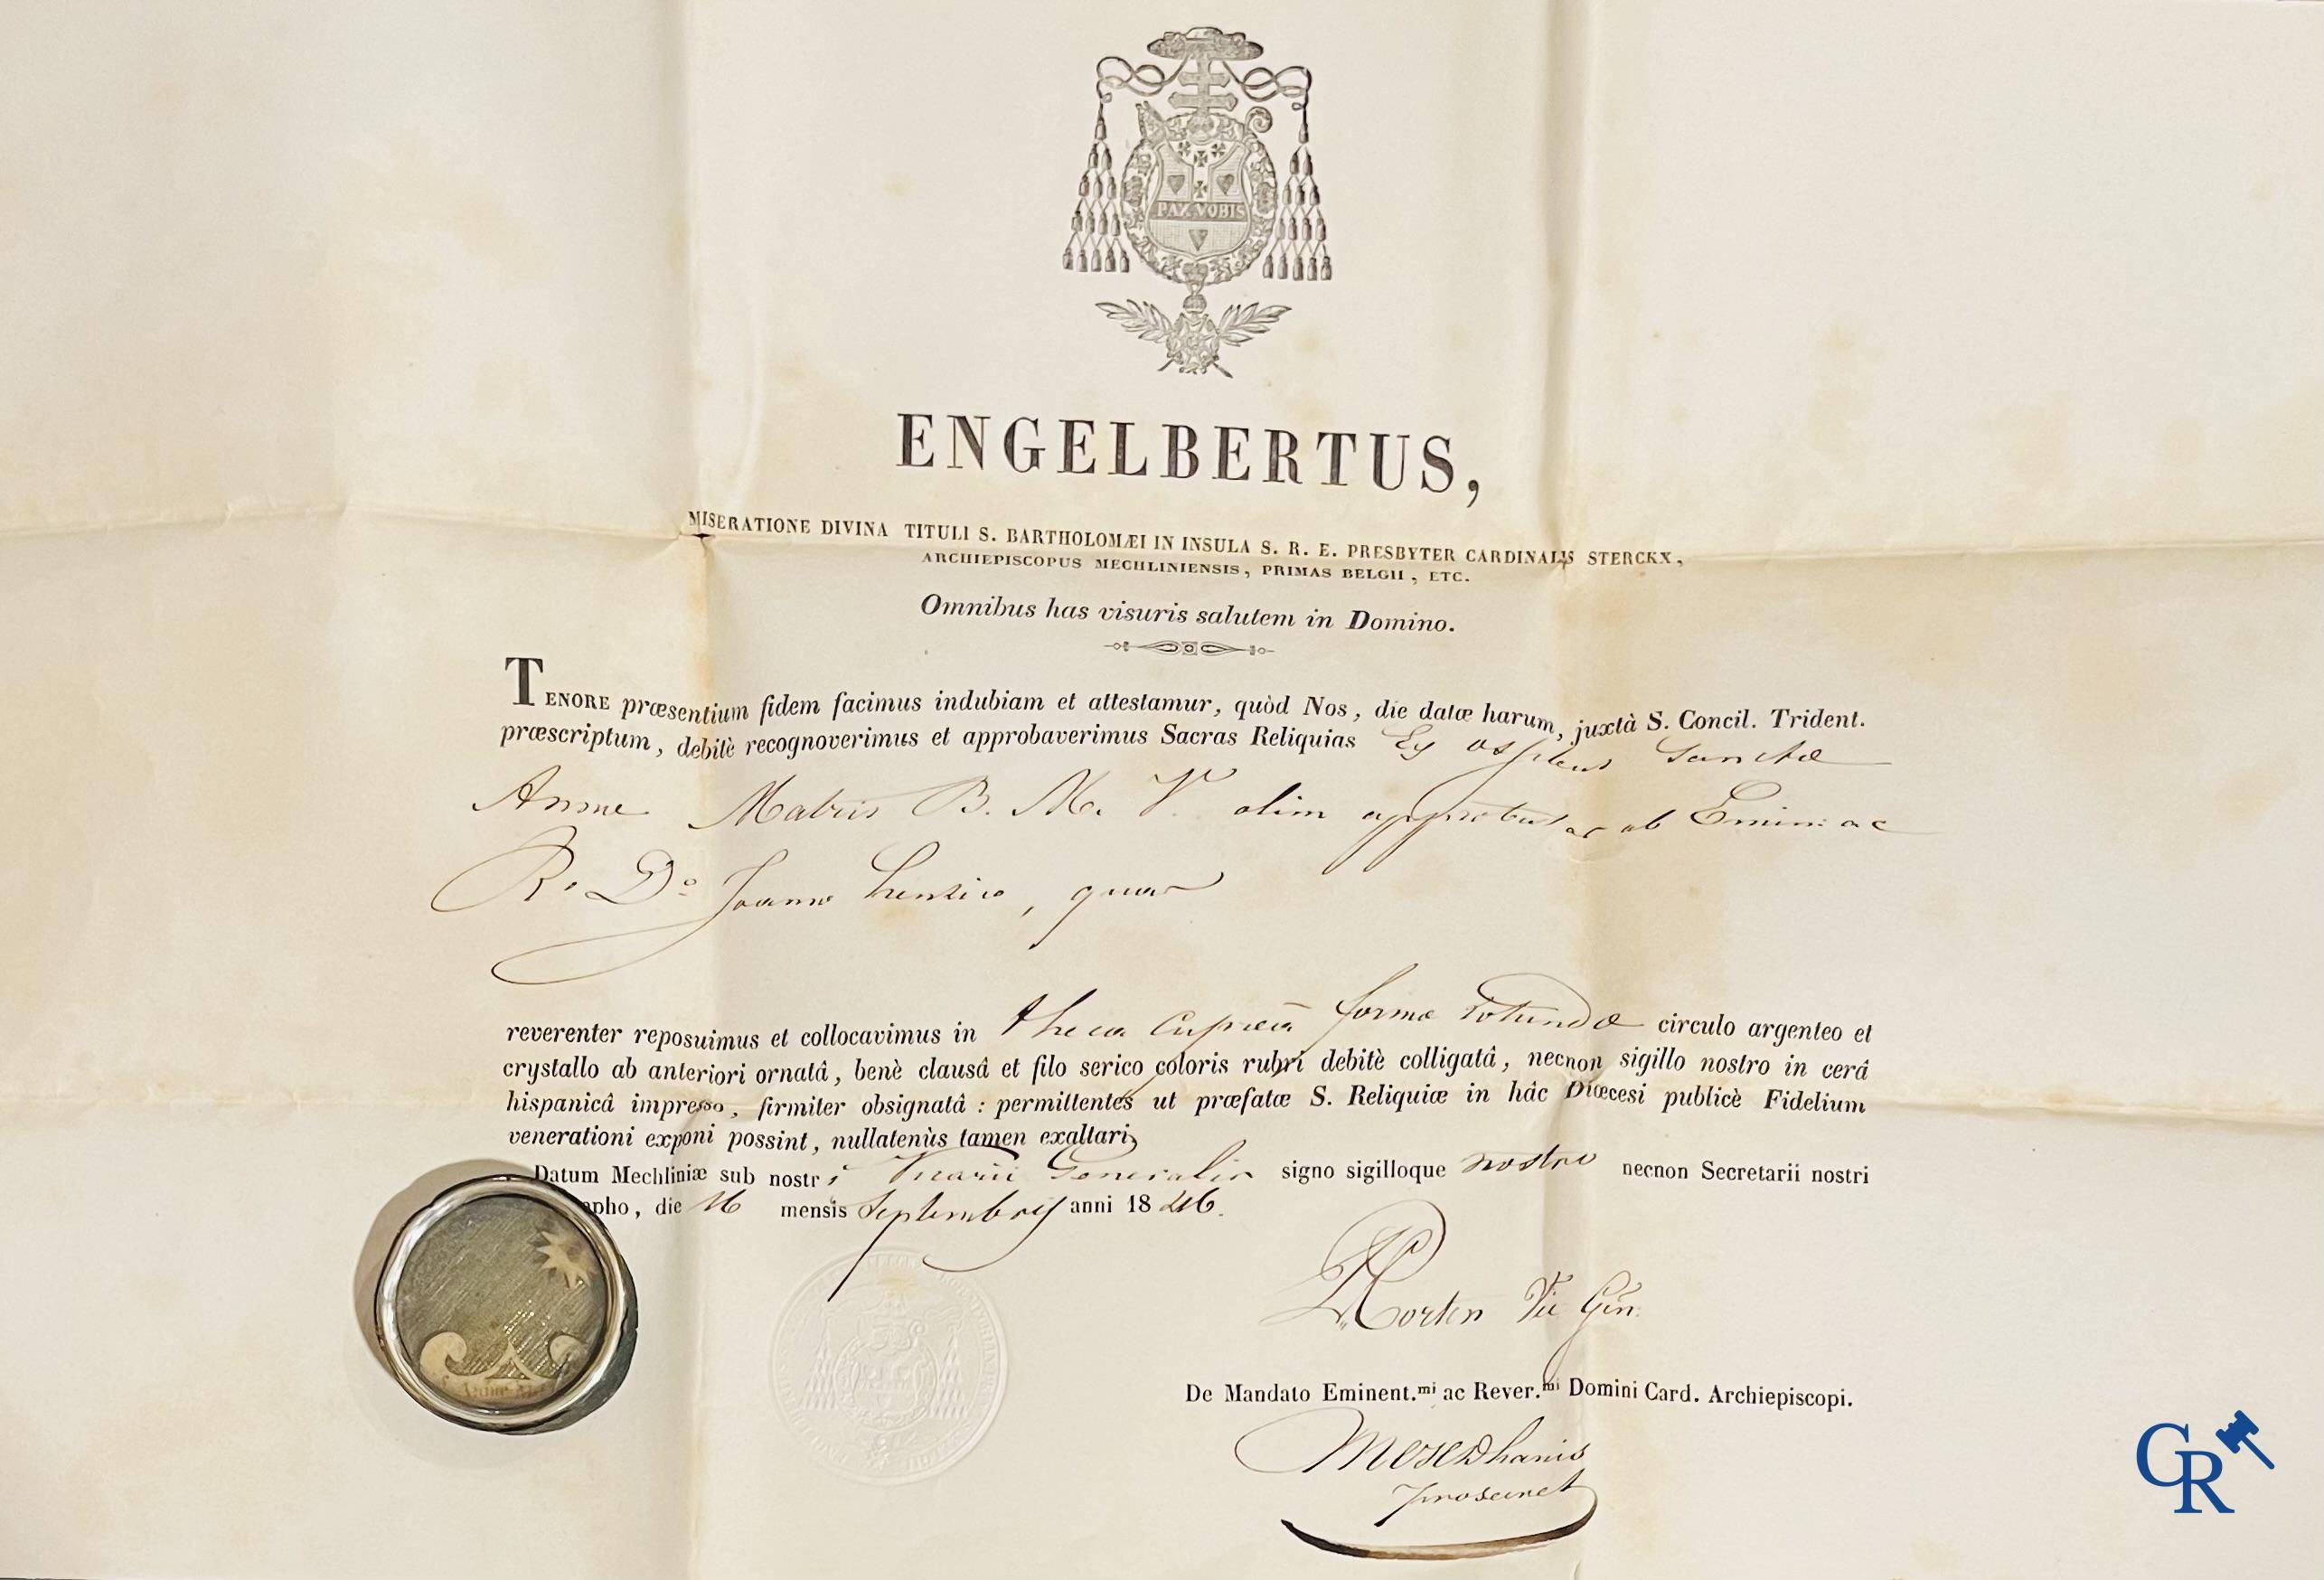 PAX VOBIS
ENGELBERTUS,
MISERATIONE DIVINA TITULI S. BARTHOLOMÆI IN INSULA S. R. E. PRESBYTER CARDINALIS STERCKX,
ARCHIEPISCOPUS MECHLINIENSIS, PRIMAS BELGII, ETC.
Omnibus has visuris salutem in Domino.
TENORE præsentium fidem facimus indubiam et attestamur, quòd Nos, die datæ harum, juxtà S. Concil. Trident.
præscriptum, debitè recognoverimus et approbaverimus Sacras Reliquias Ex ossibus Sanctæ
Annæ Matris B. M. V. olim approbatas ab Emin: ac
R. Do Joanne Henrico, quas
reverenter reposuimus et collocavimus in theca cupreâ formæ rotundæ circulo argenteo et
crystallo ab anteriori ornatâ, benè clausâ et filo serico coloris rubri debitè colligatâ, necnon sigillo nostro in cerâ
hispanicâ impresso, firmiter obsignatâ : permittentes ut præfatæ S. Reliquiæ in hâc Diœcesi publicè Fidelium
venerationi exponi possint, nullatenùs tamen exaltari,
Datum Mechliniæ sub nostri Vicarii Generalis signo sigilloque nostro necnon Secretarii nostri
apho, die 16 mensis Septembris anni 1846.
Corten Vic Gen.
De Mandato Eminent.mi ac Rever.mi Domini Card. Archiepiscopi.
prosecret
S. Annæ M
CR